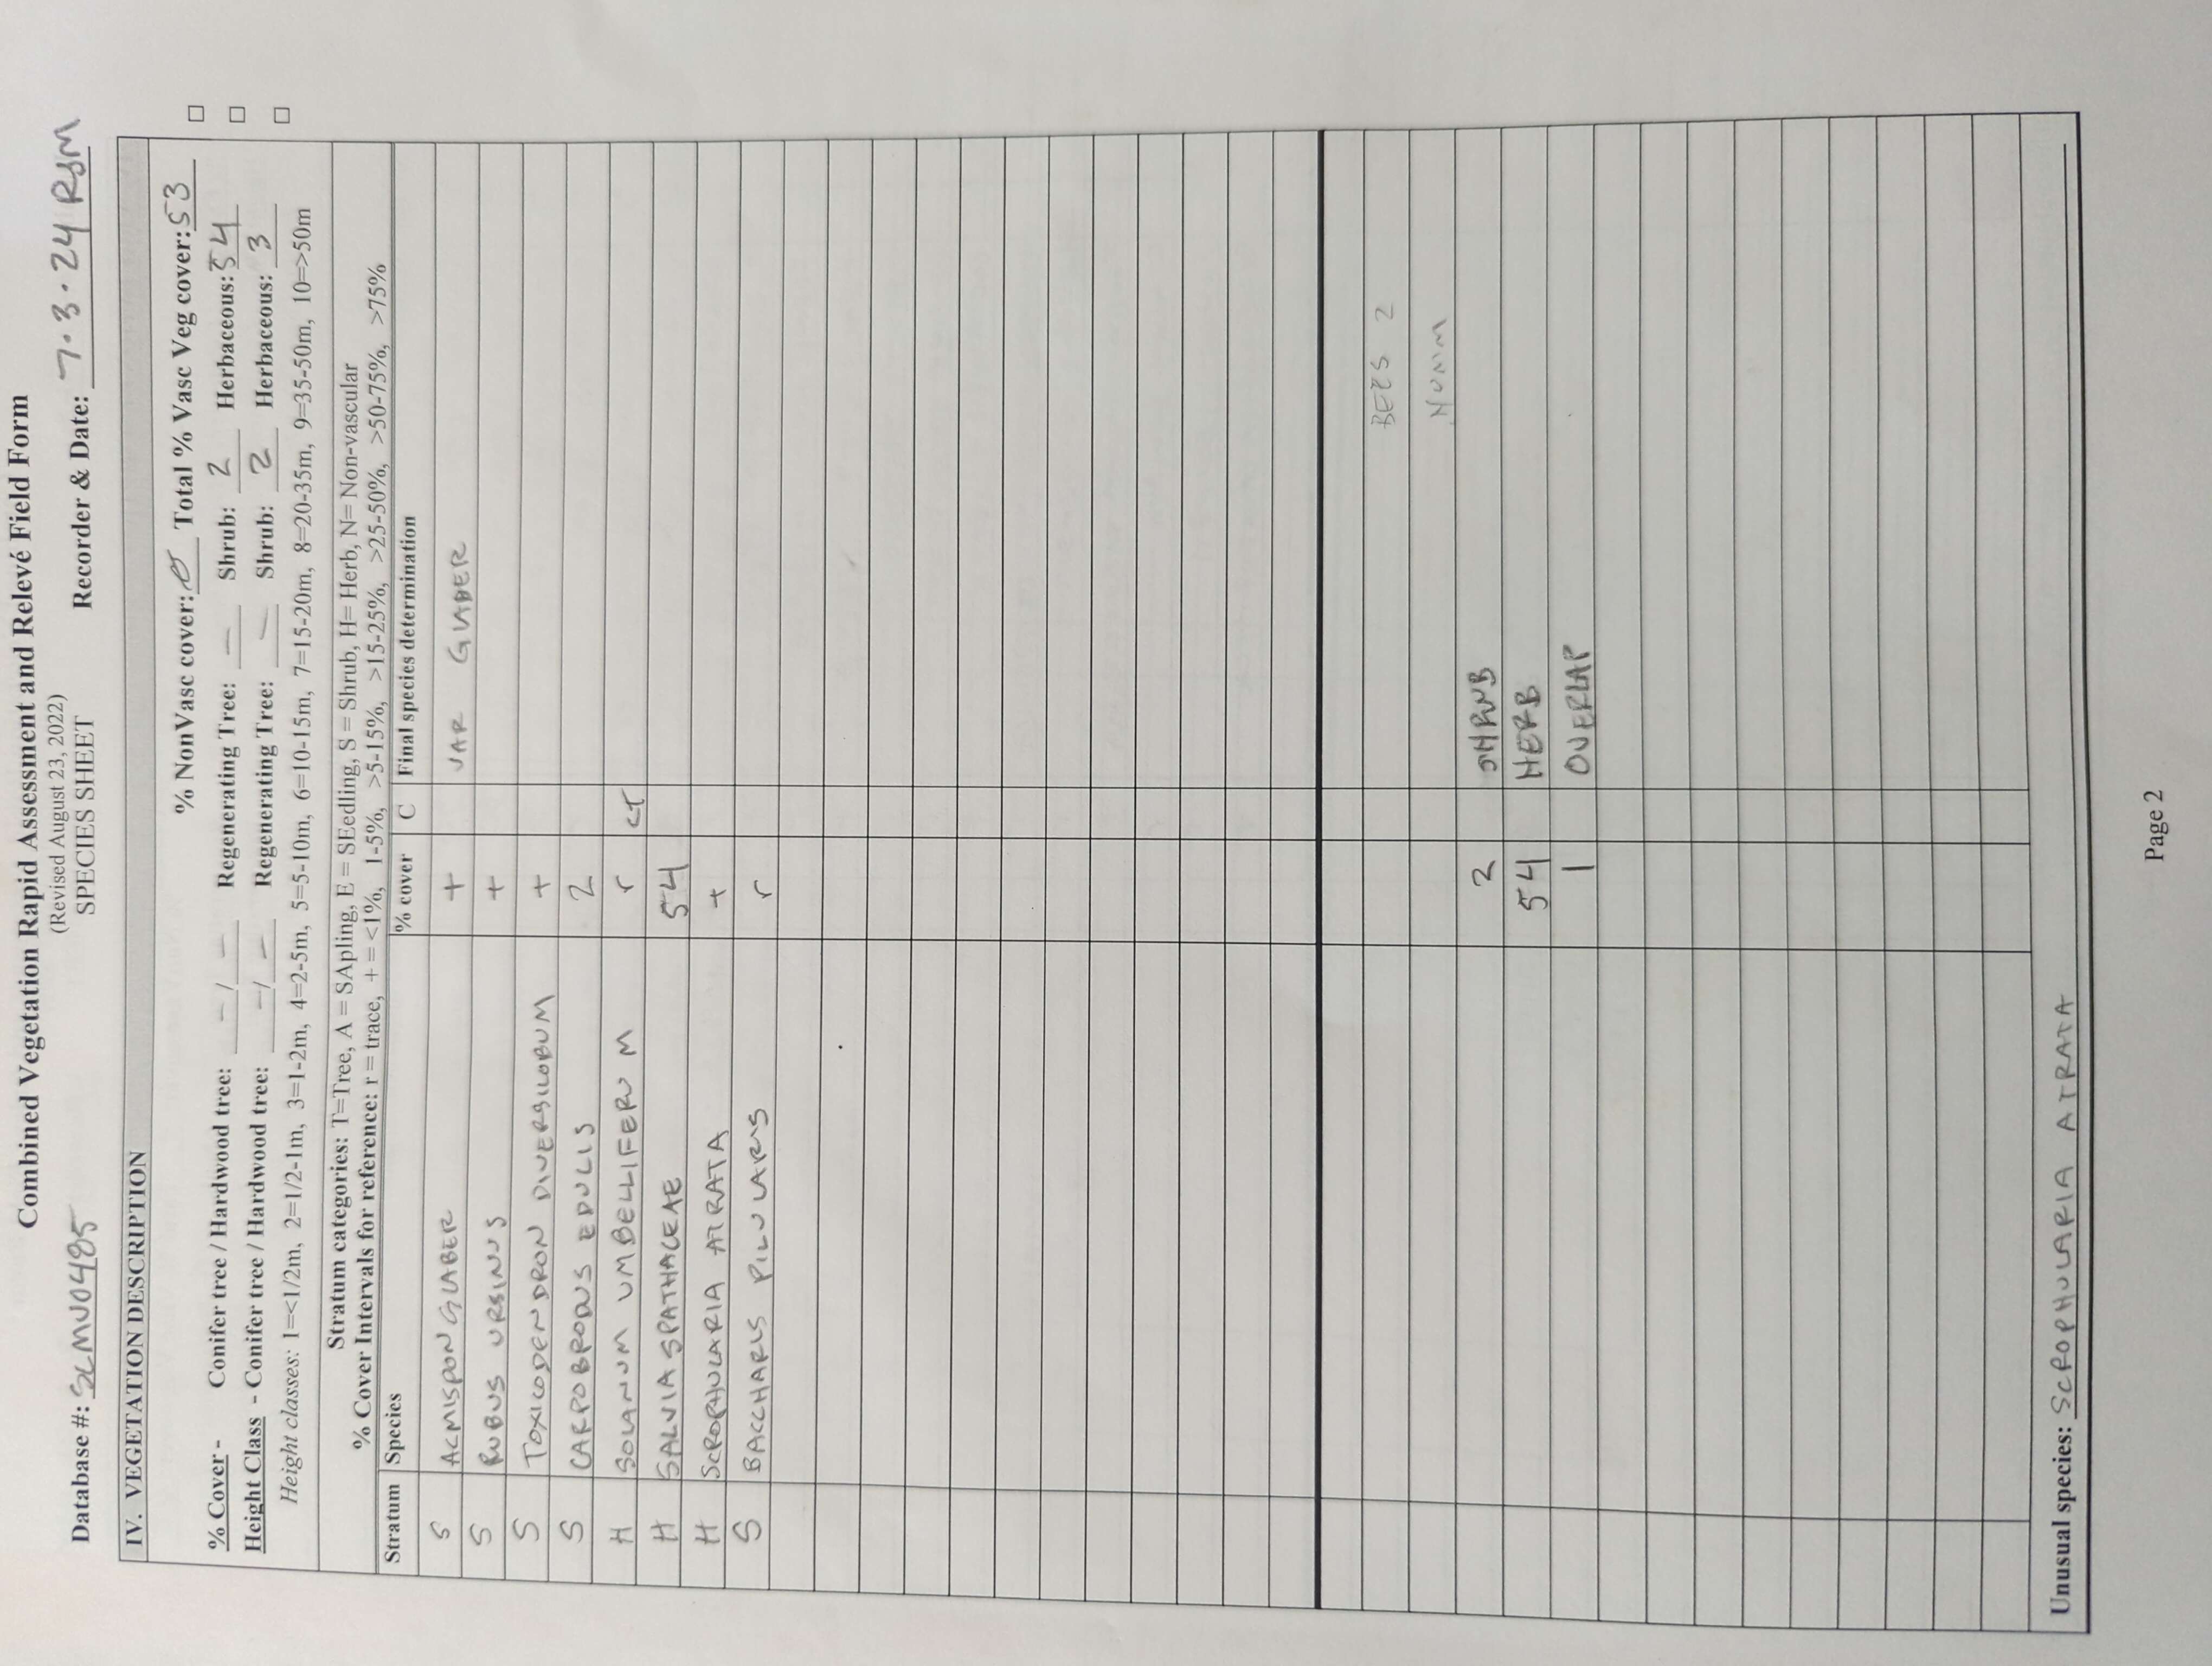 Combined Vegetation Rapid Assessment and Relevé Field Form
(Revised August 23, 2022)
SPECIES SHEET
Database #: SCMN0495 Recorder & Date: 7.3.24 RJM
IV. VEGETATION DESCRIPTION
% NonVasc cover: 0 Total % Vasc Veg cover: 53 □
% Cover - Conifer tree / Hardwood tree: - / - Regenerating Tree: - Shrub: 2 Herbaceous: 54 □
Height Class - Conifer tree / Hardwood tree: - / - Regenerating Tree: - Shrub: 2 Herbaceous: 3 □
Height classes: 1=<1/2m, 2=1/2-1m, 3=1-2m, 4=2-5m, 5=5-10m, 6=10-15m, 7=15-20m, 8=20-35m, 9=35-50m, 10=>50m
Stratum categories: T=Tree, A = SApling, E = SEedling, S = Shrub, H= Herb, N= Non-vascular
% Cover Intervals for reference: r = trace, + = <1%, 1-5%, >5-15%, >15-25%, >25-50%, >50-75%, >75%
Stratum Species % cover C Final species determination
S ACMISPON GLABER + VAR GLABER
S RUBUS URSINUS +
S TOXICODENDRON DIVERSILOBUM +
S CARPOBROTUS EDULIS 2
H SOLANUM UMBELLIFERUM r cf
H SALVIA SPATHACEAE 54
H SCROPHULARIA ATRATA +
S BACCHARIS PILULARIS r
BEES 2
2 SHRUB
54 HERB
1 OVERLAP
Unusual species: SCROPHULARIA ATRATA
Page 2